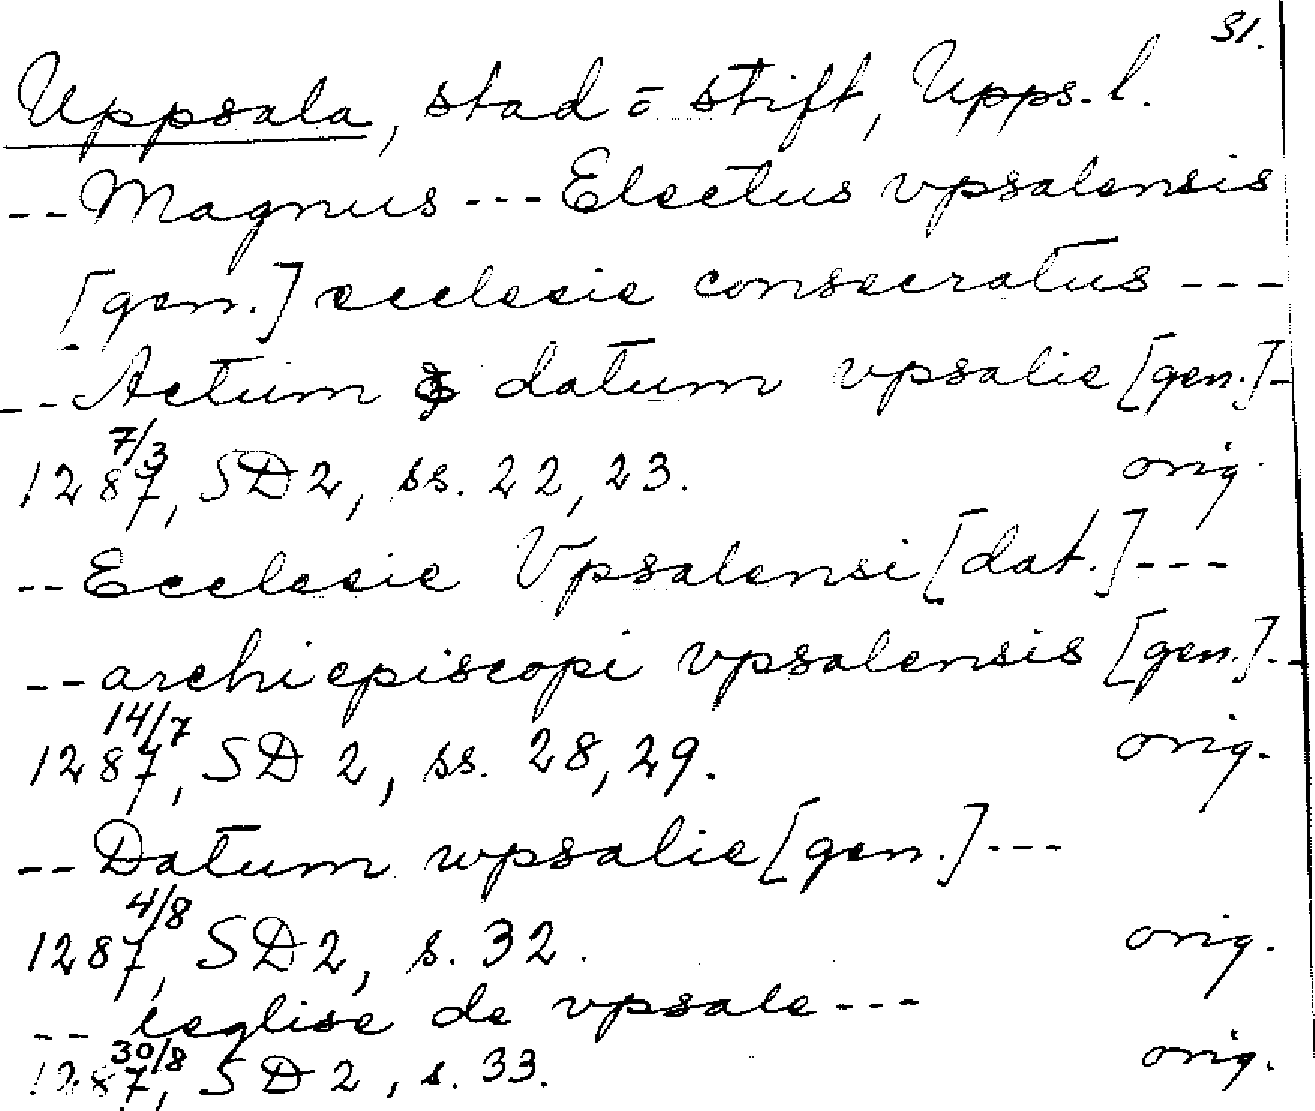 31.
Uppsala, stad o stift, Upps. l.
-- Magnus --- Electus vpsalensis
[gen.] ecclesie consecratus ---
-- Actum & datum vpsalie [gen.] -
1287 7/3, SD 2, ss. 22, 23. orig.
-- Ecclesie Vpsalensi [dat.] ---
-- archiepiscopi vpsalensis [gen.] --
1287 14/7, SD 2, ss. 28, 29. orig.
-- Datum wpsalie [gen.] ---
1287 4/8, SD 2, s. 32. orig.
-- leglise de vpsale ---
1287 30/8, SD 2, s. 33. orig.